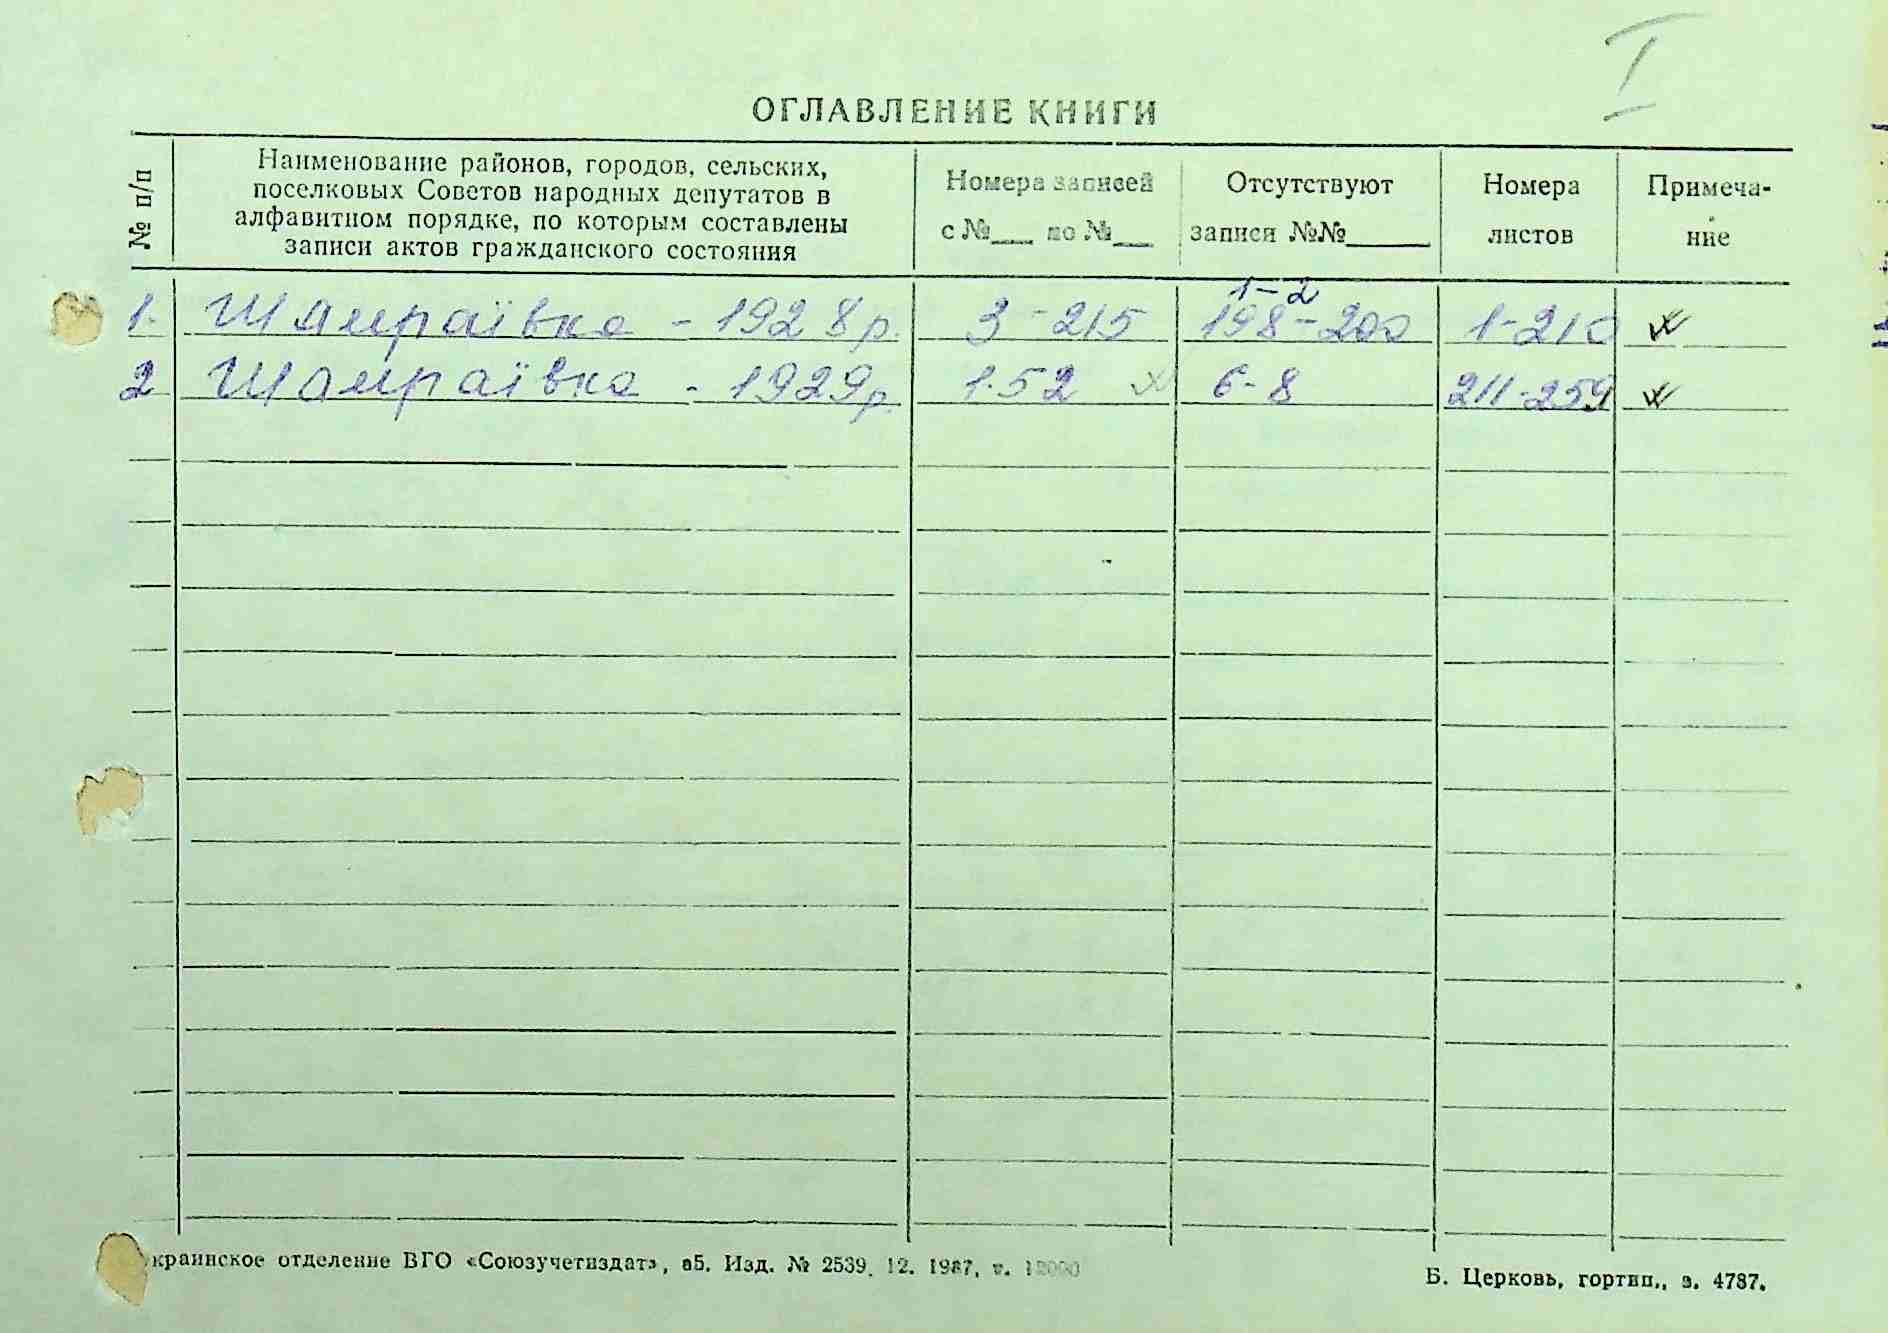 I
ОГЛАВЛЕНИЕ КНИГИ
№ п/п
Наименование районов, городов, сельских,
поселковых Советов народных депутатов в
алфавитном порядке, по которым составлены
записи актов гражданского состояния
Номера записей
с №___ по №___
Отсутствуют
записи №№______
Номера
листов
Примеча-
ние
1. Шамраївка - 1928 р. 3-215 1-2 198-200 1-210
2 Шамраївка - 1929 р. 1-52 6-8 211-259
краинское отделение ВГО «Союзучетиздат», а5. Изд. № 2539. 12. 1987, т. 12000
Б. Церковь, гортип., з. 4787.